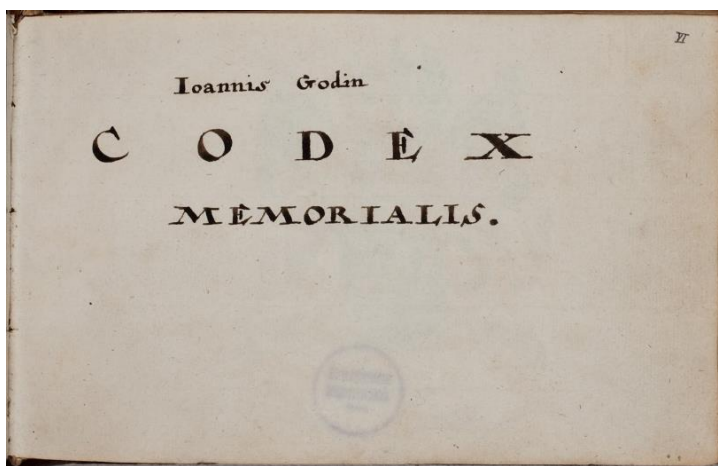 VI
Ioannis Godin
CODÊX
MÊMORIALIS.